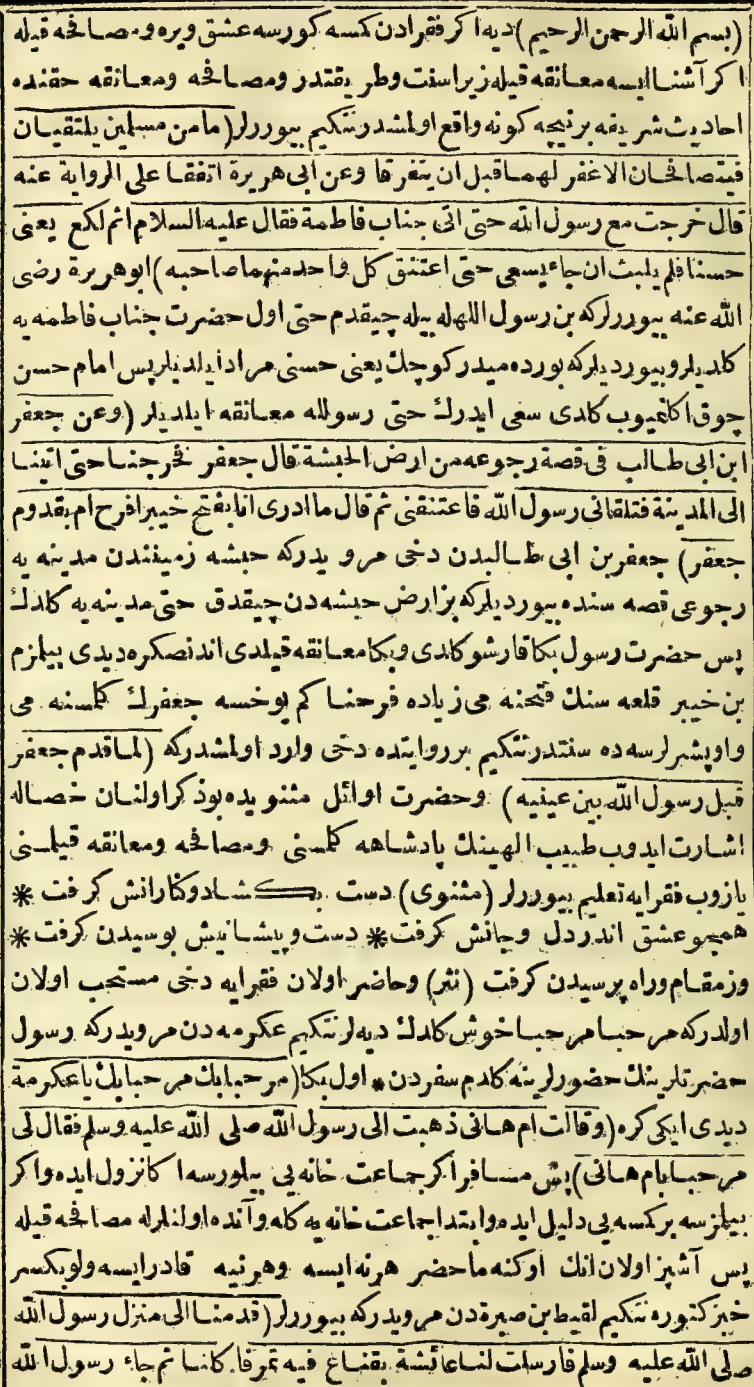 (بسم الله الرحمن الرحيم) ديه اكر فقرادن كمسه كورسه عشق ويره ومصافحه قيله
اكر آشنا ايسه معانقه قيله زيرا سنت وطريقتدر ومصافحه ومعانقه حقنده
احاديث شريفه بر نيچه كونه واقع اولمشدر نتكيم بيوررلر (مامن مسلمين يلتقيان
فيتصافحان الا غفر لهما قبل ان يتفرقا وعن ابى هريرة اتفقا على الرواية عنه
قال خرجت مع رسول الله حتى اتى جناب فاطمة فقال عليه السلام اثم لكع يعنى
حسنا فلم يلبث ان جاء يسعى حتى اعتنق كل واحد منهما صاحبه) ابو هريرة رضى
الله عنه بيوررلركه بن رسول اللهله بيله چيقدم حتى اول حضرت جناب فاطمه يه
كلديلر وبيورديلركه بورده ميدر كوچك يعنى حسنى مراد ايلديلر پس امام حسن
چوق اكلنميوب كلدى سعى ايدرك حتى رسوللله معانقه ايلديلر (وعن جعفر
ابن ابى طالب فى قصة رجوعه من ارض الحبشة قال جعفر فخرجنا حتى اتينا
الى المدينة فتلقانى رسول الله فاعتنقنى ثم قال ما ادرى انا بفتح خيبر افرح ام بقدوم
جعفر) جعفر بن ابى طالبدن دخى مرويدركه حبشه زمينندن مدينه يه
رجوعى قصه سنده بيورديلركه بز ارض حبشه دن چيقدق حتى مدينه يه كلدك
پس حضرت رسول بكا قارشو كلدى وبكا معانقه قيلدى اندنصكره ديدى بيلزم
بن خيبر قلعه سنك فتحنه مى زياده فرحنا كم يوخسه جعفرك كلمسنه مى
واوپشيرلرسه ده سنتدر نتكيم بر روايتده دخى وارد اولمشدركه (لما قدم جعفر
قبل رسول الله بين عينيه) وحضرت اوائل مثنويده بو ذكر اولنان خصاله
اشارت ايدوب طبيب الهينك پادشاهه كلمسنى ومصافحه ومعانقه قيلمسنى
يازوب فقرايه تعليم بيوررلر (مثنوى) دست بكشاد وكنارانش كرفت *
همچو عشق اندر دل وجانش كرفت * دست وپيشانيش بوسيدن كرفت *
وزمقام وراه پرسيدن كرفت (نثر) وحاضر اولان فقرايه دخى مستحب اولان
اولدركه مرحبا مرحبا خوش كلدك ديه لر نتكيم عكرمه دن مرويدركه رسول
حضرتلرينك حضورلرينه كلدم سفردن * اول بكا (مرحبا بك مرحبا بك يا عكرمة
ديدى ايكى كره (وقالت ام هانى ذهبت الى رسول الله صلى الله عليه وسلم فقال لى
مرحبا بام هانى) پس مسافر اكر جماعت خانه يى بيلورسه اكا نزول ايده واكر
بيلزسه بركمسه يى دليل ايده وابتدا جماعت خانه يه كله وآنده اولنلرله مصافحه قيله
پس آشپز اولان انك اوكنه ماحضر هرنه ايسه وهر نيه قادر ايسه ولو بكسر
خبز كتوره نتكيم لقيط بن صبرة دن مرويدركه بيوررلر (قدمنا الى منزل رسول الله
صلى الله عليه وسلم فارسلت لنا عائشة بقناع فيه تمر فاكلنا ثم جاء رسول الله